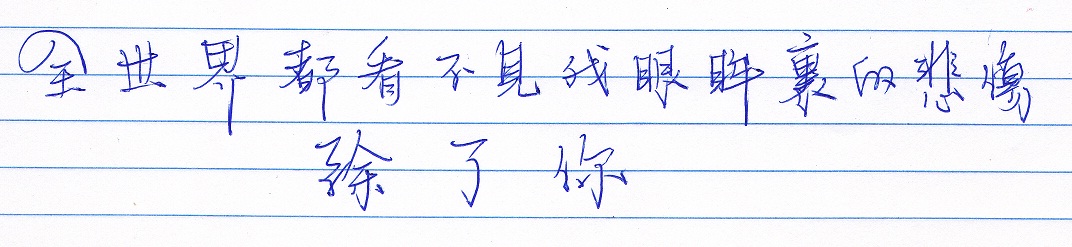 全世界都看不見我眼眸裏的悲傷
除了你